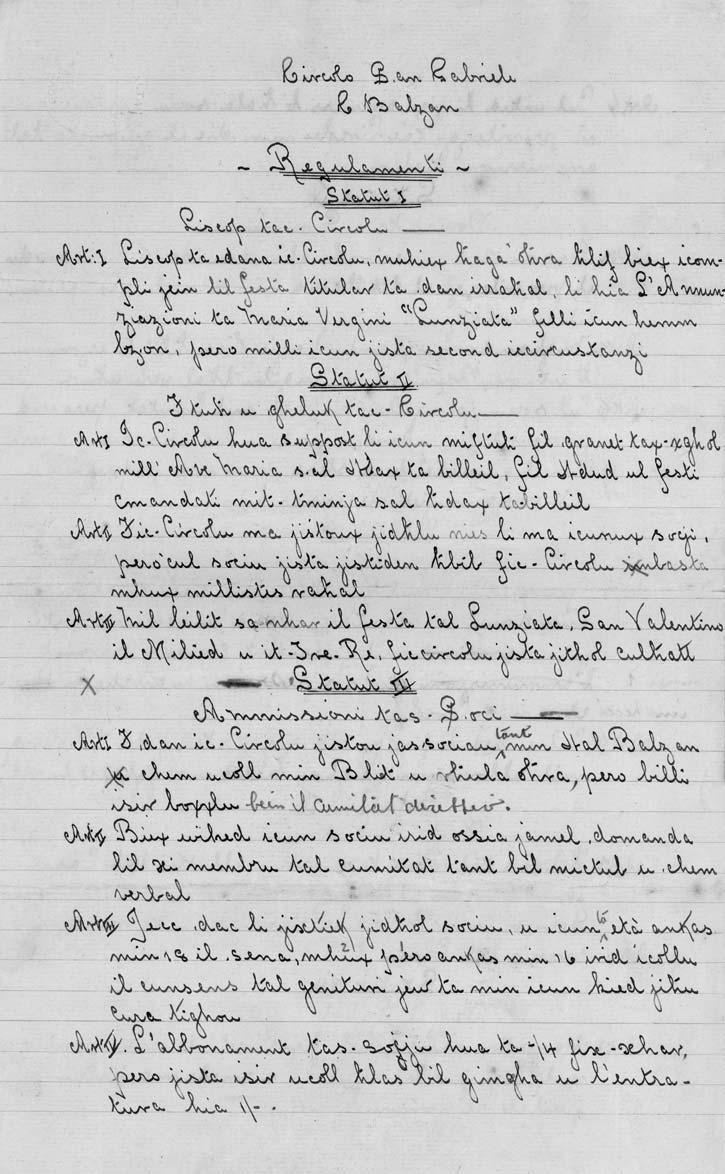 Circolo San Gabriele
H Balzan
- Regulamenti -
Statut I
L'iscop tac-Circolu —
Art: I L'iscop ta edana ic-Circolu, muhiex haga ohra hlif biex icom-
pli jein lil festa titular ta dan irrahal, li hia L'Annun-
ziazioni ta Maria Vergini "Lunziata" filli icun hemm
bzon, pero milli icun jista second iccircustanzi
Statut II
Ftuh u gheluk tac-Circolu —
Art I Ic-Circolu hua suppost li icun miftuh fil granet tax-xghol
mill' Ave Maria s'al Hdax ta billeil, fil Hdud ul festi
cmandati mit-tminja sal hdax ta-billeil
Art II Fic-Circolu ma jistoux jidhlu nies li ma icunux soċji,
pero cul sociu jista jistiden hbil fic-Circolu imbasta
mhux millistes rahal
Art III Mil leilit sa nhar il festa tal Lunziata, San Valentino
il Milied u it-Tre-Re, ficcircolu jista jithol culhatt
X Statut III
Ammissioni tas-Soci —
Art I F'dan ic-Circolu jistou jassociau tant min Hal Balzan
chem ucoll min Blet u rhula ohra, pero billi
isir boxxlu bein il cumitat direttiv.
Art II Biex wihed icun sociu irid ossia jamel domanda
lil xi membru tal cumitat tant bil mictub u chem
verbal
Art III Jecc dac li jixtiek jidhol sociu, u icun ta età ankas
min 18 il sena, mhux pero ankas min 16 irid icollu
il cunsens tal genituri jew ta min icun hied jihu
cura tighou
Art IV. L'abbonament tas-soċju hua ta -/4 fix-xhar,
pero jista isir ucoll hlas bil gimgha u l'entra-
tura hia 1/-.